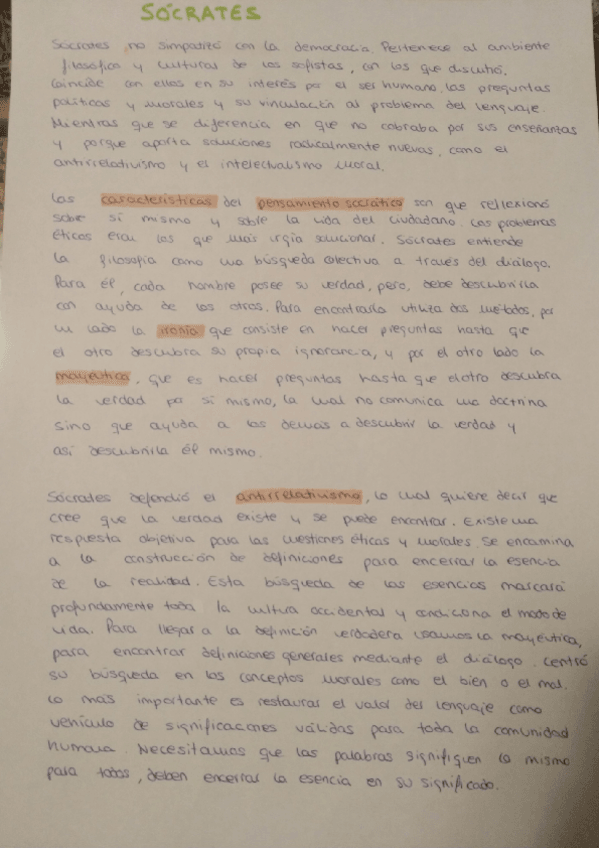 SÓCRATES
Sócrates no simpatizó con la democracia. Pertenece al ambiente
filosófico y culturas de los sofistas, con los que discutió.
Coincide con ellos en su interés por el ser humano, las preguntas
políticas y morales y su vinculación al problema del lenguaje.
Mientras que se diferencia en que no cobraba por sus enseñanzas
y porque aporta soluciones radicalmente nuevas, como el
antirrelativismo y el intelectualismo moral.
Las características del pensamiento socrático son que reflexionó
sobre sí mismo y sobre la vida del ciudadano. Los problemas
éticos eran los que más urgía solucionar. Sócrates entiende
la filosofía como una búsqueda colectiva a través del diálogo.
Para él, cada hombre posee su verdad, pero, debe descubrirla
con ayuda de los otros. Para encontrarla utiliza dos métodos, por
un lado la ironía que consiste en hacer preguntas hasta que
el otro descubra su propia ignorancia, y por el otro lado la
mayéutica, que es hacer preguntas hasta que el otro descubra
la verdad por sí mismo, la cual no comunica una doctrina
sino que ayuda a los demás a descubrir la verdad y
así descubrirla él mismo.
Sócrates defendió el antirrelativismo, lo cual quiere decir que
cree que la verdad existe y se puede encontrar. Existe una
respuesta objetiva para las cuestiones éticas y morales. Se encamina
a la construcción de definiciones para encerrar la esencia
de la realidad. Esta búsqueda de las esencias marcará
profundamente toda la cultura occidental y condiciona el modo de
vida. Para llegar a la definición verdadera usamos la mayéutica,
para encontrar definiciones generales mediante el diálogo. Centró
su búsqueda en los conceptos morales como el bien o el mal.
Lo más importante es restaurar el valor del lenguaje como
vehículo de significaciones válidas para toda la comunidad
humana. Necesitamos que las palabras signifiquen lo mismo
para todos, deben encerrar la esencia en su significado.